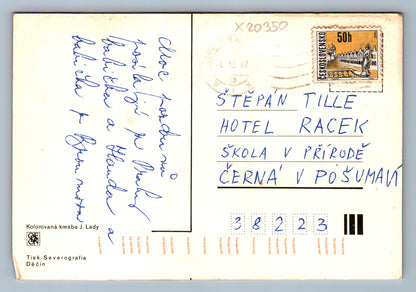 X 20350
50h
ČESKOSLOVENSKO
moc pozdravů
posílají z Prahy
babička a Honda a
babička z
ŠTĚPÁN TILLE
HOTEL RACEK
ŠKOLA V PŘÍRODĚ
ČERNÁ V POŠUMAVÍ
38223
Kolorovaná kresba J. Lady
Tisk Severografia
Děčín